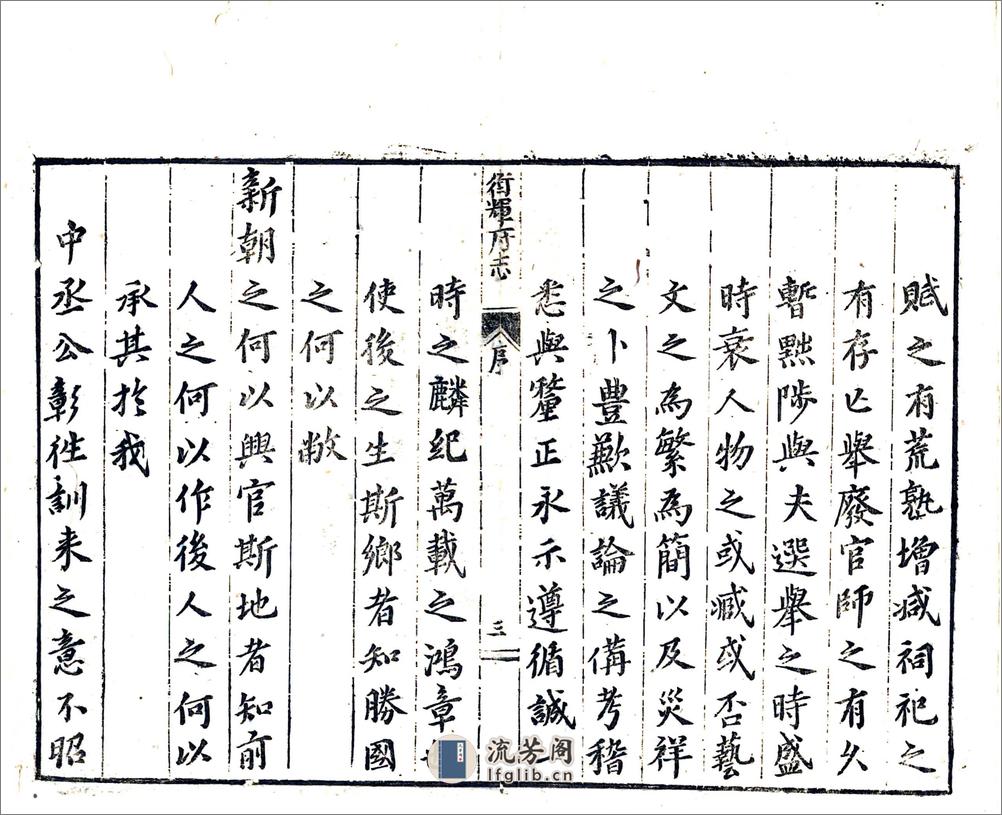 賦之有荒熟增减祠祀之
有存亡舉廢官師之有久
暫黜陟與夫選舉之時盛
時衰人物之或臧或否藝
文之為繁為簡以及災祥
之卜豊歉議論之備考稽
悉與釐正永示遵循誠
衛輝府志
序
三
時之麟紀萬載之鴻章
使後之生斯鄉者知勝國
之何以敝
新朝之何以興官斯地者知前
人之何以作後人之何以
承其於我
中丞公彰徃訓来之意不昭
流芳阁
lfglib.cn